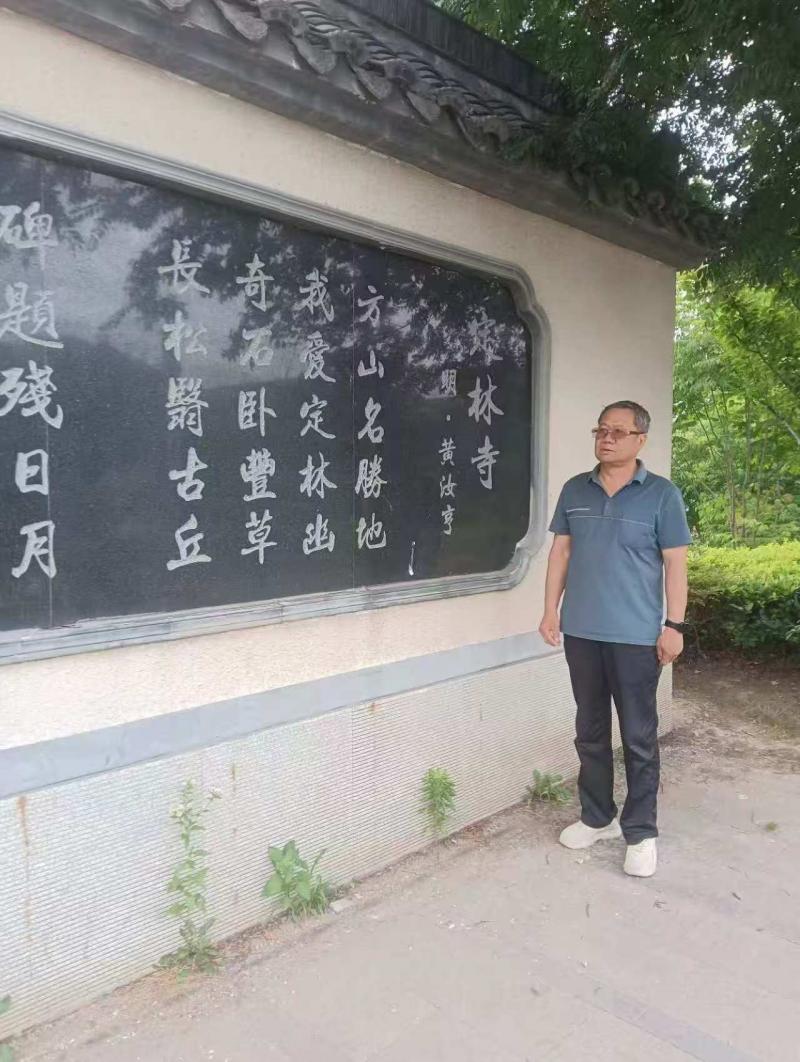 定林寺
明·黄汝亨
方山名勝地
我愛定林幽
奇石卧豐草
長松翳古丘
碑題殘日月